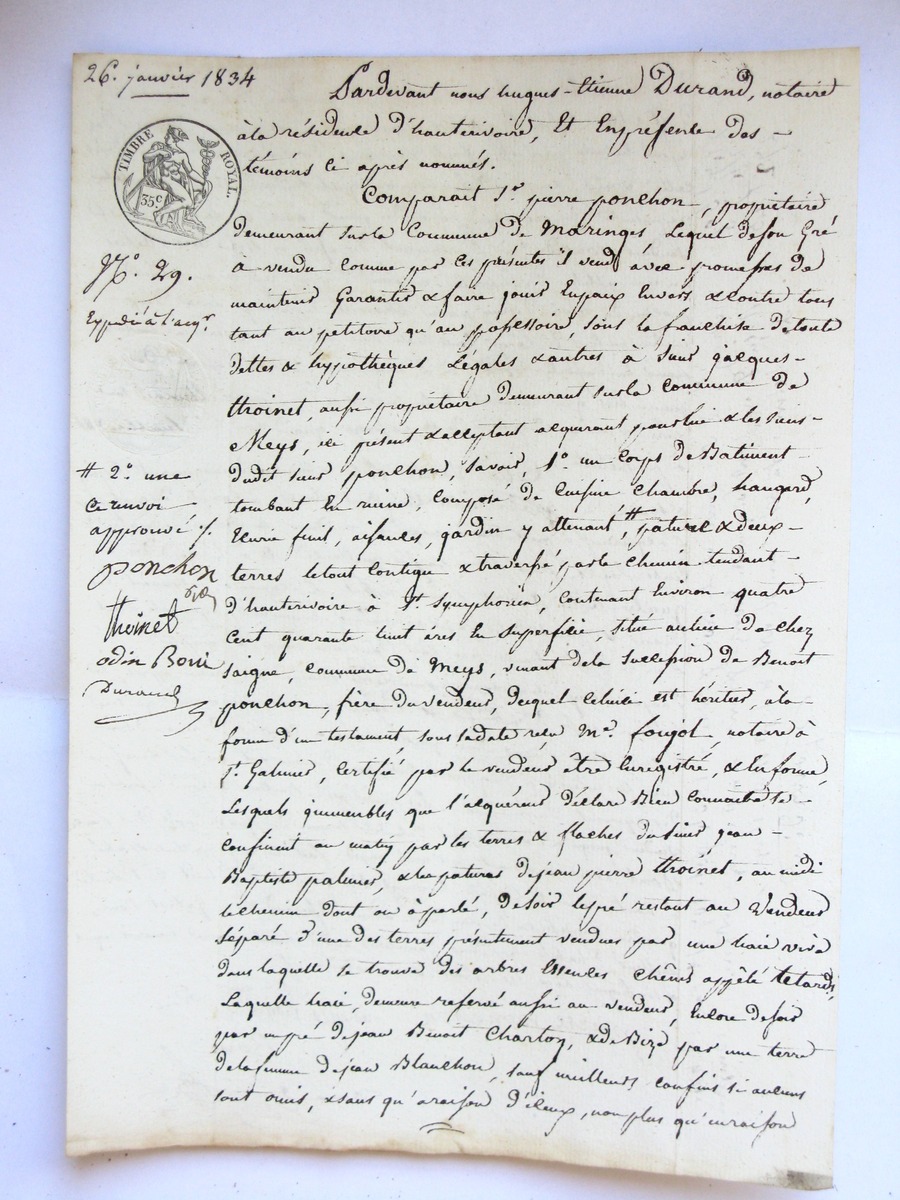 26. janvier 1834
TIMBRE ROYAL.
35c.
No. 29.
Expédié à l'acqr.
# 2o. une
ce renvoi
approuvé ./.
ponchon
thoinet
odin Boni
Durand
Pardevant nous hugues-Etienne Durand, notaire
à la résidence d'hauterivoire, Et En présence des -
témoins ci après nommés.
Comparait Sr. pierre ponchon, propriétaire
demeurant sur la Commune de Maringes Lequel de son Gré
à vendu comme par ces présentes il vend avec promesses de
maintenir Garantir & faire jouir En paix Envers & contre tous
tant au petitoire qu'au possessoire, sous la franchise de toute
dettes & hypothèques Légales & autres à Sieur jacques -
thoinet, aussi propriétaire demeurant sur la commune de
Meys, ici présent & acceptant acquérant pour lui & les siens -
dudit sieur ponchon, savoir, 1o. un corps de Batiment -
tombant En ruine, Composé de Cuisine Chambre, hangard,
Ecurie fenil, aisances, jardin y attenant #, pature & deux -
terres le tout Contigu & traversé par le Chemin tendant -
d'hauterivoire à St. Symphorien, Contenant Environ quatre
Cent quarante huit ares En Superficie, situé au lieu de Chez
saigne, Commune de Meys, venant de la Succession de Benoit
ponchon, frère du vendeur, duquel Celui ci est héritier, à la -
forme d'un testament, sous sa date reçu Me. foujol, notaire à
St. Galmier, Certifié par le vendeur être Enregistré, & En forme,
Lesquels immeubles que l'acquéreur déclare Bien connaitre se -
confinent au matin par les terres & flaches du sieur jean -
Baptiste palmier, & les patures de jean pierre thoinet, au midi
le chemin dont on à parlé, de soir le pré restant au Vendeur
séparé d'une des terres présentement vendues par une haie vive
dans laquelle se trouve des arbres Essences chênes appelé tetards,
Laquelle haie, demeure reservé aussi au vendeur, Encore de soir
par un pré de jean Benoit Charton, & de Bize par une terre
de la femme de jean Blanchon, sauf meilleurs confins si aucuns
sont omis, & sans qu'a raison d'iceux, non plus qu'en raison